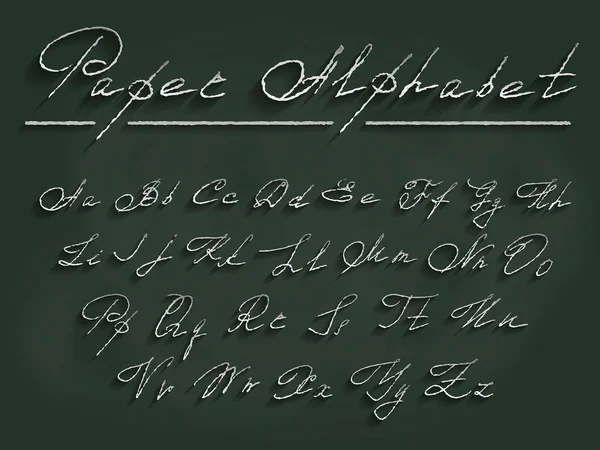 Paper Alphabet
Aa Bb Cc Dd Ee Ff Gg Hh
Ii Jj Kk Ll Mm Nn Oo
Pp Qq Rr Ss Tt Uu
Vv Ww Xx Yy Zz